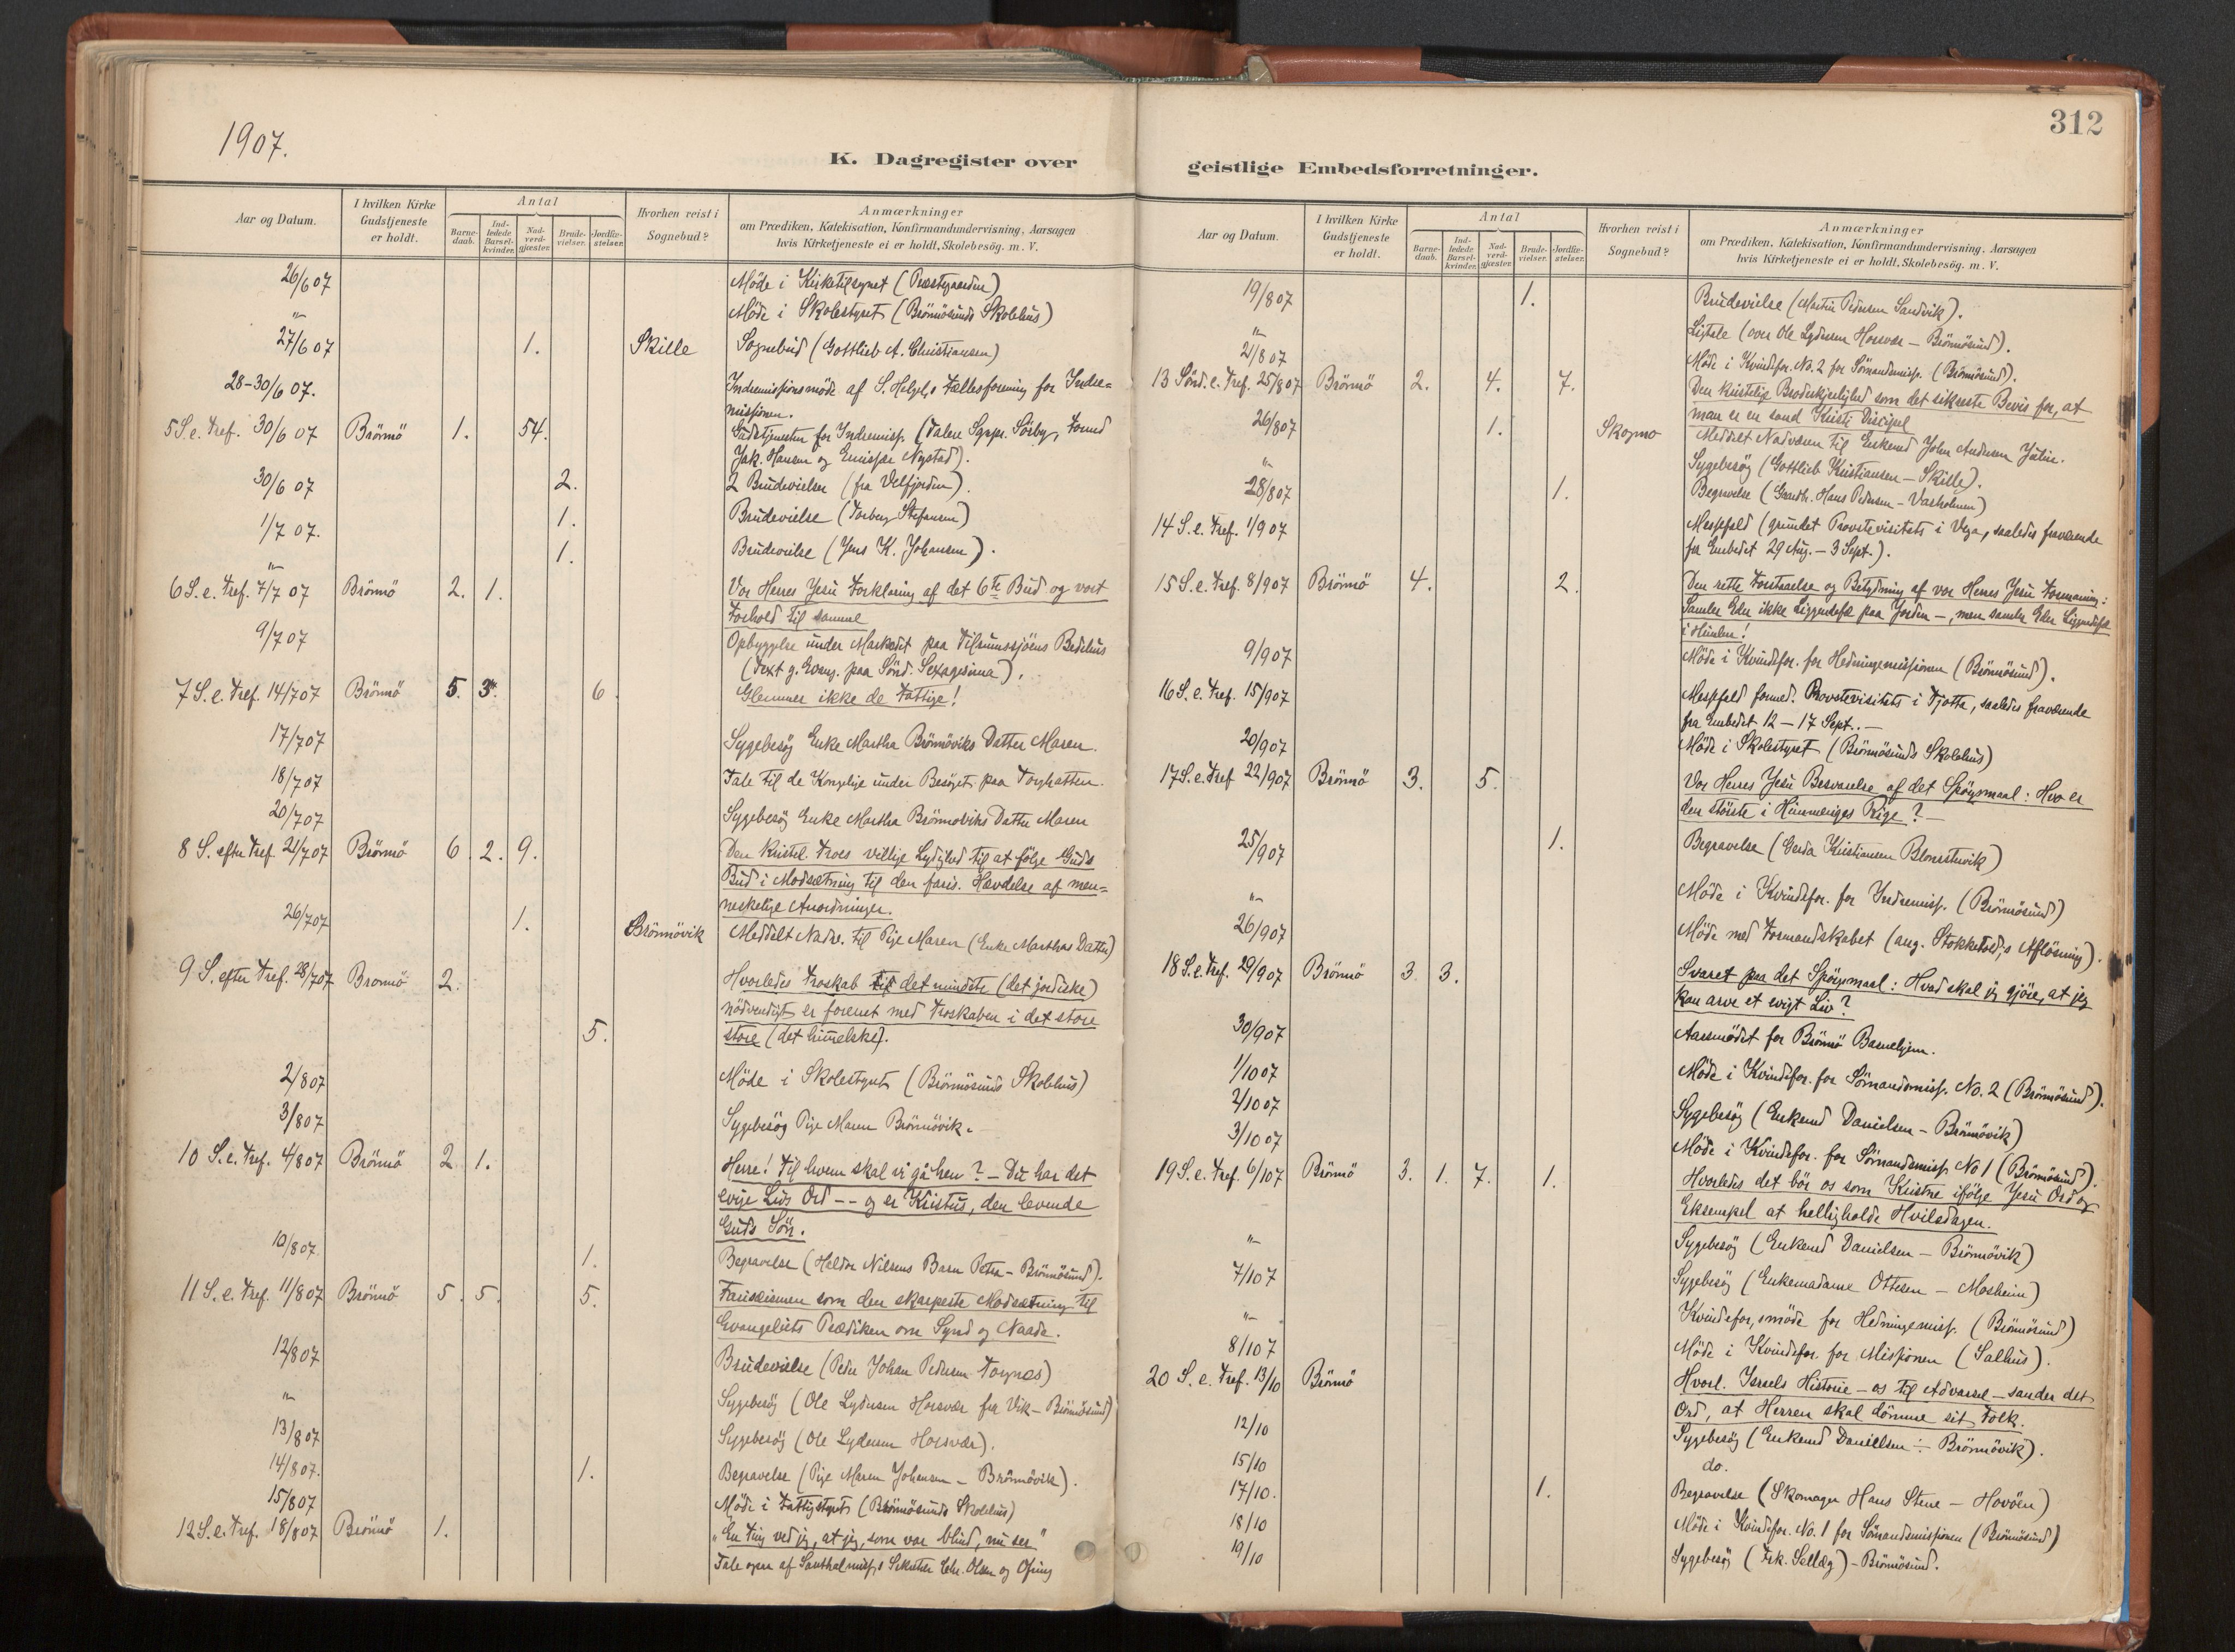 1907.
K. Dagregister over
Aar og Datum.
I hvilken Kirke Gudstjeneste er holdt.
Antal
Barne-daab.
Ind-ledede Barsel-kvinder.
Nad-verd-gjæster.
Brude-vielser.
Jordfæ-stelser.
Hvorhen reist i Sognebud?
Anmærkninger
om Prædiken, Katekisation, Konfirmandundervisning, Aarsagen
hvis Kirketjeneste ei er holdt, Skolebesög. m. V.
26/6 07 Möde i Kirketilsynet (Præstegaarden)
" Möde i Skolestyret (Brönnösunds Skolehus)
27/6 07 1. Skille Sognebud (Gottlieb A. Christiansen)
28-30/6 07. Indremissionsmöde af S. Helgel.s Fællesforening for Indre=
missionen.
5 S. e. Tref. 30/6 07 Brönnö 1. 54. Gudstjenesten for Indremiss. (Talere Sgpr. Sörby, Formd
Jak. Hansen og Emissær Nystad).
30/6 07 2. 2 Brudevielser (fra Velfjorden).
1/7 07. 1. Brudevielse (Torberg Stefansen)
" 1. Brudevielse (Jens K. Johansen).
6 S. e. Tref. 7/7 07 Brönnö 2. 1. Vor Herres Jesu Forklaring af det 6te Bud og vort
Forhold til samme
9/7 07 Opbyggelse under Markedet paa Tilrumssjöens Bedehus
(Text g. Evang. paa Sönd. Sexagesima).
7 S. e. Tref. 14/7 07 Brönnö 5. 3. 6. Glemmer ikke de Fattige!
17/7 07 Sygebesög Enke Martha Brönnöviks Datter Maren.
18/7 07 Tale til de Kongelige under Besöget paa Torghatten.
20/7 07 Sygebesög Enke Martha Brönnöviks Datter Maren
8 S. efter Tref. 21/7 07 Brönnö 6. 2. 9. Den kristel. Troes villige Lydighed til at fölge Guds
Bud i Modsætning til den faris. Hævdelse af men=
neskelige Anordninger.
26/7 07 1. Brönnövik Meddelt Nadv. til Pige Maren (Enke Marthas Datter)
9 S. efter Tref. 28/7 07 Brönnö 2. Hvorledes Troskab til det mindste (det jordiske)
nödvendigt er forenet med Troskaben i det store
5. store (det himmelske).
2/8 07 Möde i Skolestyret (Brönnösunds Skolehus)
3/8 07 Sygebesög Pige Maren Brönnövik.
10 S. e. Tref. 4/8 07 Brönnö 2. 1. Herre! Til hvem skal vi gå hen? - Du har det
evige Livs Ord -- og er Kristus, den levende
Guds Sön.
10/8 07. 1. Begravelse (Haldor Nilsens Barn Petra - Brönnösund).
11 S. e. Tref. 11/8 07 Brönnö 5. 5. 5. Fariseismen som den skarpeste Modsætning til
Evangeliets Prædiken om Synd og Naade.
12/8 07 Brudevielse (Peder Johan Pedersen Torgnes)
" Sygebesög (Ole Lydersen Horsvær fra Vik - Brönnösund)
13/8 07 Sygebesög (Ole Lydersen Horsvær).
14/8 07. 1. Begravelse (Pige Maren Johansen - Brönnövik).
15/8 07 Möde i Fattigstyret (Brönnösunds Skolehus)
12 S. e. Tref. 18/8 07 Brönnö 1. "En Ting ved jeg, at jeg, som var blind, nu ser"
Tale ogsaa af Santhalmiss.s Sekretær Chr. Olsen og
312
geistlige Embedsforretninger.
Aar og Datum.
I hvilken Kirke Gudstjeneste er holdt.
Antal
Barne-daab.
Ind-ledede Barsel-kvinder.
Nad-verd-gjæster.
Brude-vielser.
Jordfæ-stelser.
Hvorhen reist i Sognebud?
Anmærkninger
om Prædiken, Katekisation, Konfirmandundervisning, Aarsagen
hvis Kirketjeneste ei er holdt, Skolebesög. m. V.
19/8 07 1. Brudevielse (Martin Pedersen Sandvik).
" Ligtale (over Ole Lydersen Horsvær - Brönnösund).
21/8 07 Möde i Kvindefor. No. 2 for Sömandsmiss. (Brönnösund).
13 Sönd. e. Tref. 25/8 07 Brönnö 2. 4. 7. Den kristelige Broderkjærlighed som det sikreste Bevis for, at
man er en sand Kristi Discipel
26/8 07 1. Skogmo Meddelt Nadveren til Enkemd John Andersen Julin.
" Sygebesög (Gottlieb Kristiansen - Skille).
28/8 07 1. Begravelse (Gaardb. Hans Pedersen - Vasholmen)
14 S. e. Tref. 1/9 07 Messefald (grundet Provstevisitats i Vega, saaledes fraværende
fra Embedet 29 Aug. - 3 Sept.).
15 S. e. Tref. 8/9 07 Brönnö 4. 2. Den rette Forstaaelse og Betydning af vor Herres Jesu Formaning:
Samler Eder ikke Liggendefæ paa Jorden -, men samler Eder Liggendefæ
i Himlen!
9/9 07 Möde i Kvindefor. for Hedningemissionen (Brönnösund).
16 S. e. Tref. 15/9 07 Messefald formed. Provstevisitats i Tjøtta, saaledes fraværende
fra Embedet 12 - 17 Sept. -
20/9 07 Möde i Skolestyret (Brönnösunds Skolehus)
17 S. e. Tref 22/9 07 Brönnö 3. 5. Vor Herres Jesu Besvarelse af det Spörgsmaal: Hvo er
den störste i Himmeriges Rige? -
25/9 07 1. Begravelse (Gerda Kristiansen Blomstervik)
" Möde i Kvindefor. for Indremiss. (Brönnösund)
26/9 07 Möde med Formandskabet (ang. Stokketold,s Aflösning).
18 S. e. Tref. 29/9 07 Brönnö 3. 3. Svaret paa det Spörgsmaal: Hvad skal jeg gjöre, at jeg
kan arve et evigt Liv?
30/9 07 Aarsmödet for Brönnö Barnehjem.
1/10 07 Möde i Kvindefor. for Sömandsmiss. No. 2 (Brönnösund).
2/10 07 Sygebesög (Enkemd Danielsen - Brönnövik)
3/10 07 Möde i Kvindefor. for Sömandsmiss. No 1 (Brönnösund).
19 S. e. Tref. 6/10 7 Brönnö 3. 1. 7. 1. Hvorledes det bör os som Kristne ifölge Jesu Ord og
Eksempel at helligholde Hviledagen.
" Sygebesög (Enkemd Danielsen - Brönnövik)
7/10 7 Sygebesög (Enkemadame Ottesen - Mosheim)
" Kvindefor,smöde for Hedningemiss. (Brönnösund)
8/10 7 Möde i Kvindefor. for Missionen (Salhus).
20 S. e. Tref. 13/10 Brönnö Hvorl. Israels Historie - os til Advarsel - sander det
Ord, at Herren skal dömme sit Folk.
12/10 Sygebesög (Enkemd Danielsen - Brönnövik).
15/10 do.
17/10. 1. Begravelse (Skomager Hans Stene - Hovöen)
18/10 Möde i Kvindefor. No. 1 for Sömandsmissionen (Brönnösund)
19/10 Sygebesög (Frk. Selläg) - Brönnösund.